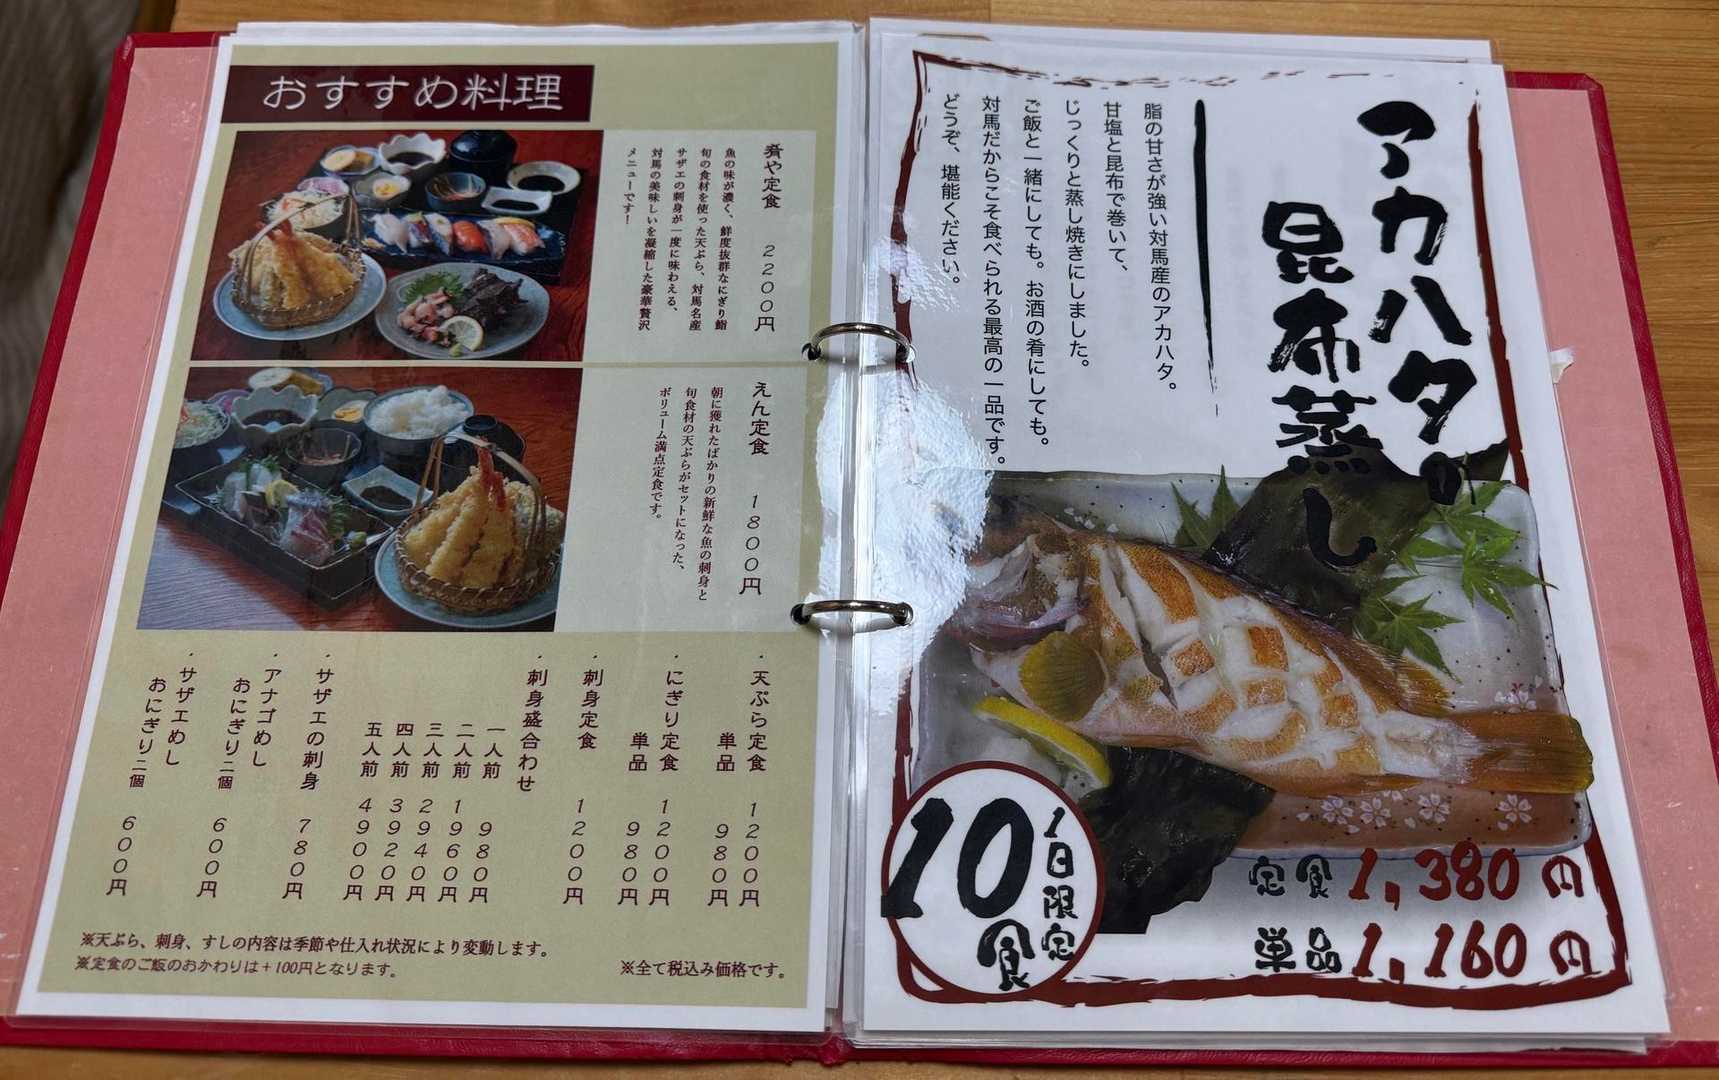 おすすめ料理
肴や定食 2200円
魚の味が濃く、鮮度抜群なにぎり鮨
旬の食材を使った天ぷら、対馬名産
サザエの刺身が一度に味わえる、
対馬の美味しいを凝縮した豪華贅沢
メニューです!
えん定食 1800円
朝に獲れたばかりの新鮮な魚の刺身と
旬食材の天ぷらがセットになった、
ボリューム満点定食です。
・天ぷら定食 1200円
単品 980円
・にぎり定食 1200円
単品 980円
・刺身定食 1200円
・刺身盛合わせ
一人前 980円
二人前 1960円
三人前 2940円
四人前 3920円
五人前 4900円
・サザエの刺身 780円
・アナゴめし
おにぎり二個 600円
・サザエめし
おにぎり二個 600円
※天ぷら、刺身、すしの内容は季節や仕入れ状況により変動します。
※定食のご飯のおかわりは+100円となります。
※全て税込み価格です。
アカハタの
昆布蒸し
脂の甘さが強い対馬産のアカハタ。
甘塩と昆布で巻いて、
じっくりと蒸し焼きにしました。
ご飯と一緒にしても。お酒の肴にしても。
対馬だからこそ食べられる最高の一品です。
どうぞ、堪能ください。
1日限定
10食
定食 1,380円
単品 1,160円